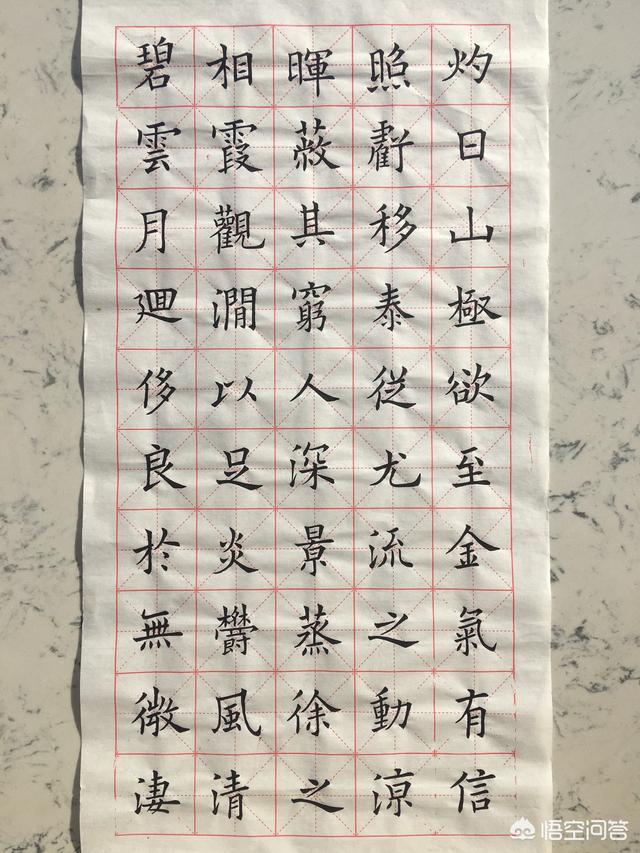 碧相暉照灼
雲霞蔽虧日
月觀其移山
廻澗窮泰極
侈以人從欲
良足深尤至
於炎景流金
無鬱蒸之氣
微風徐動有
淒清之涼信
悟空问答